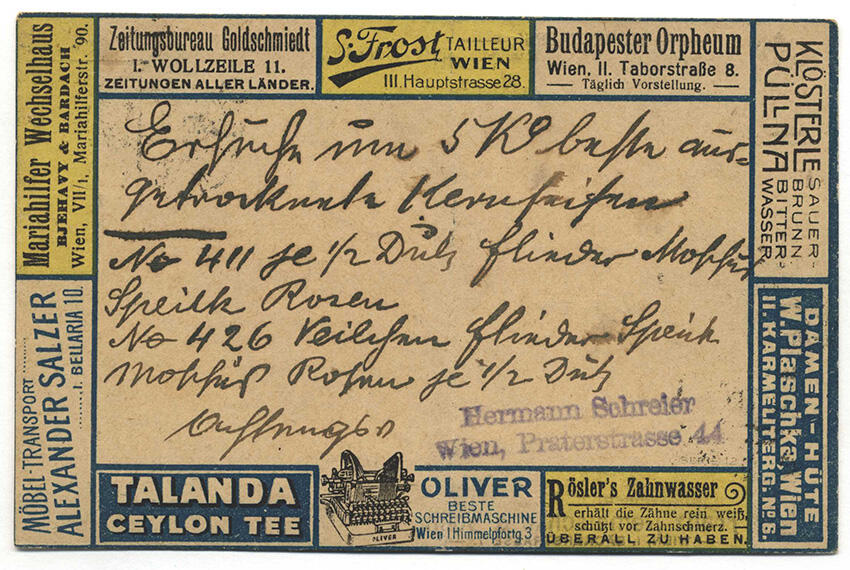 Zeitungsbureau Goldschmiedt
I. WOLLZEILE 11.
ZEITUNGEN ALLER LÄNDER.
S. Frost TAILLEUR
WIEN
III. Hauptstrasse 28.
Budapester Orpheum
Wien, II. Taborstraße 8.
Täglich Vorstellung.
Mariahilfer Wechselhaus
BJEHAVY & BARDACH
Wien, VII/1, Mariahilferstr. 90.
KLÖSTERLE SAUER-
BRUNN
PÜLLNA BITTER-
WASSER
Ersuche um 5 Ko beste aus-
getrocknete Kernseifen
No 411 je 1/2 Dutz Flieder Moschus
Speick Rosen
No 426 Veilchen Flieder Speick
Moschus Rosen je 1/2 Dutz
Achtungsv
Hermann Schreier
Wien, Praterstrasse 44
MÖBEL-TRANSPORT
ALEXANDER SALZER
I. BELLARIA 10.
DAMEN-HÜTE
W. Plaschke, Wien
II. KARMELITERG. No 6.
TALANDA
CEYLON TEE
OLIVER
OLIVER
BESTE
SCHREIBMASCHINE
Wien I Himmelpfortg. 3
Rösler's Zahnwasser
erhält die Zähne rein weiß,
schützt vor Zahnschmerz.
ÜBERALL ZU HABEN.